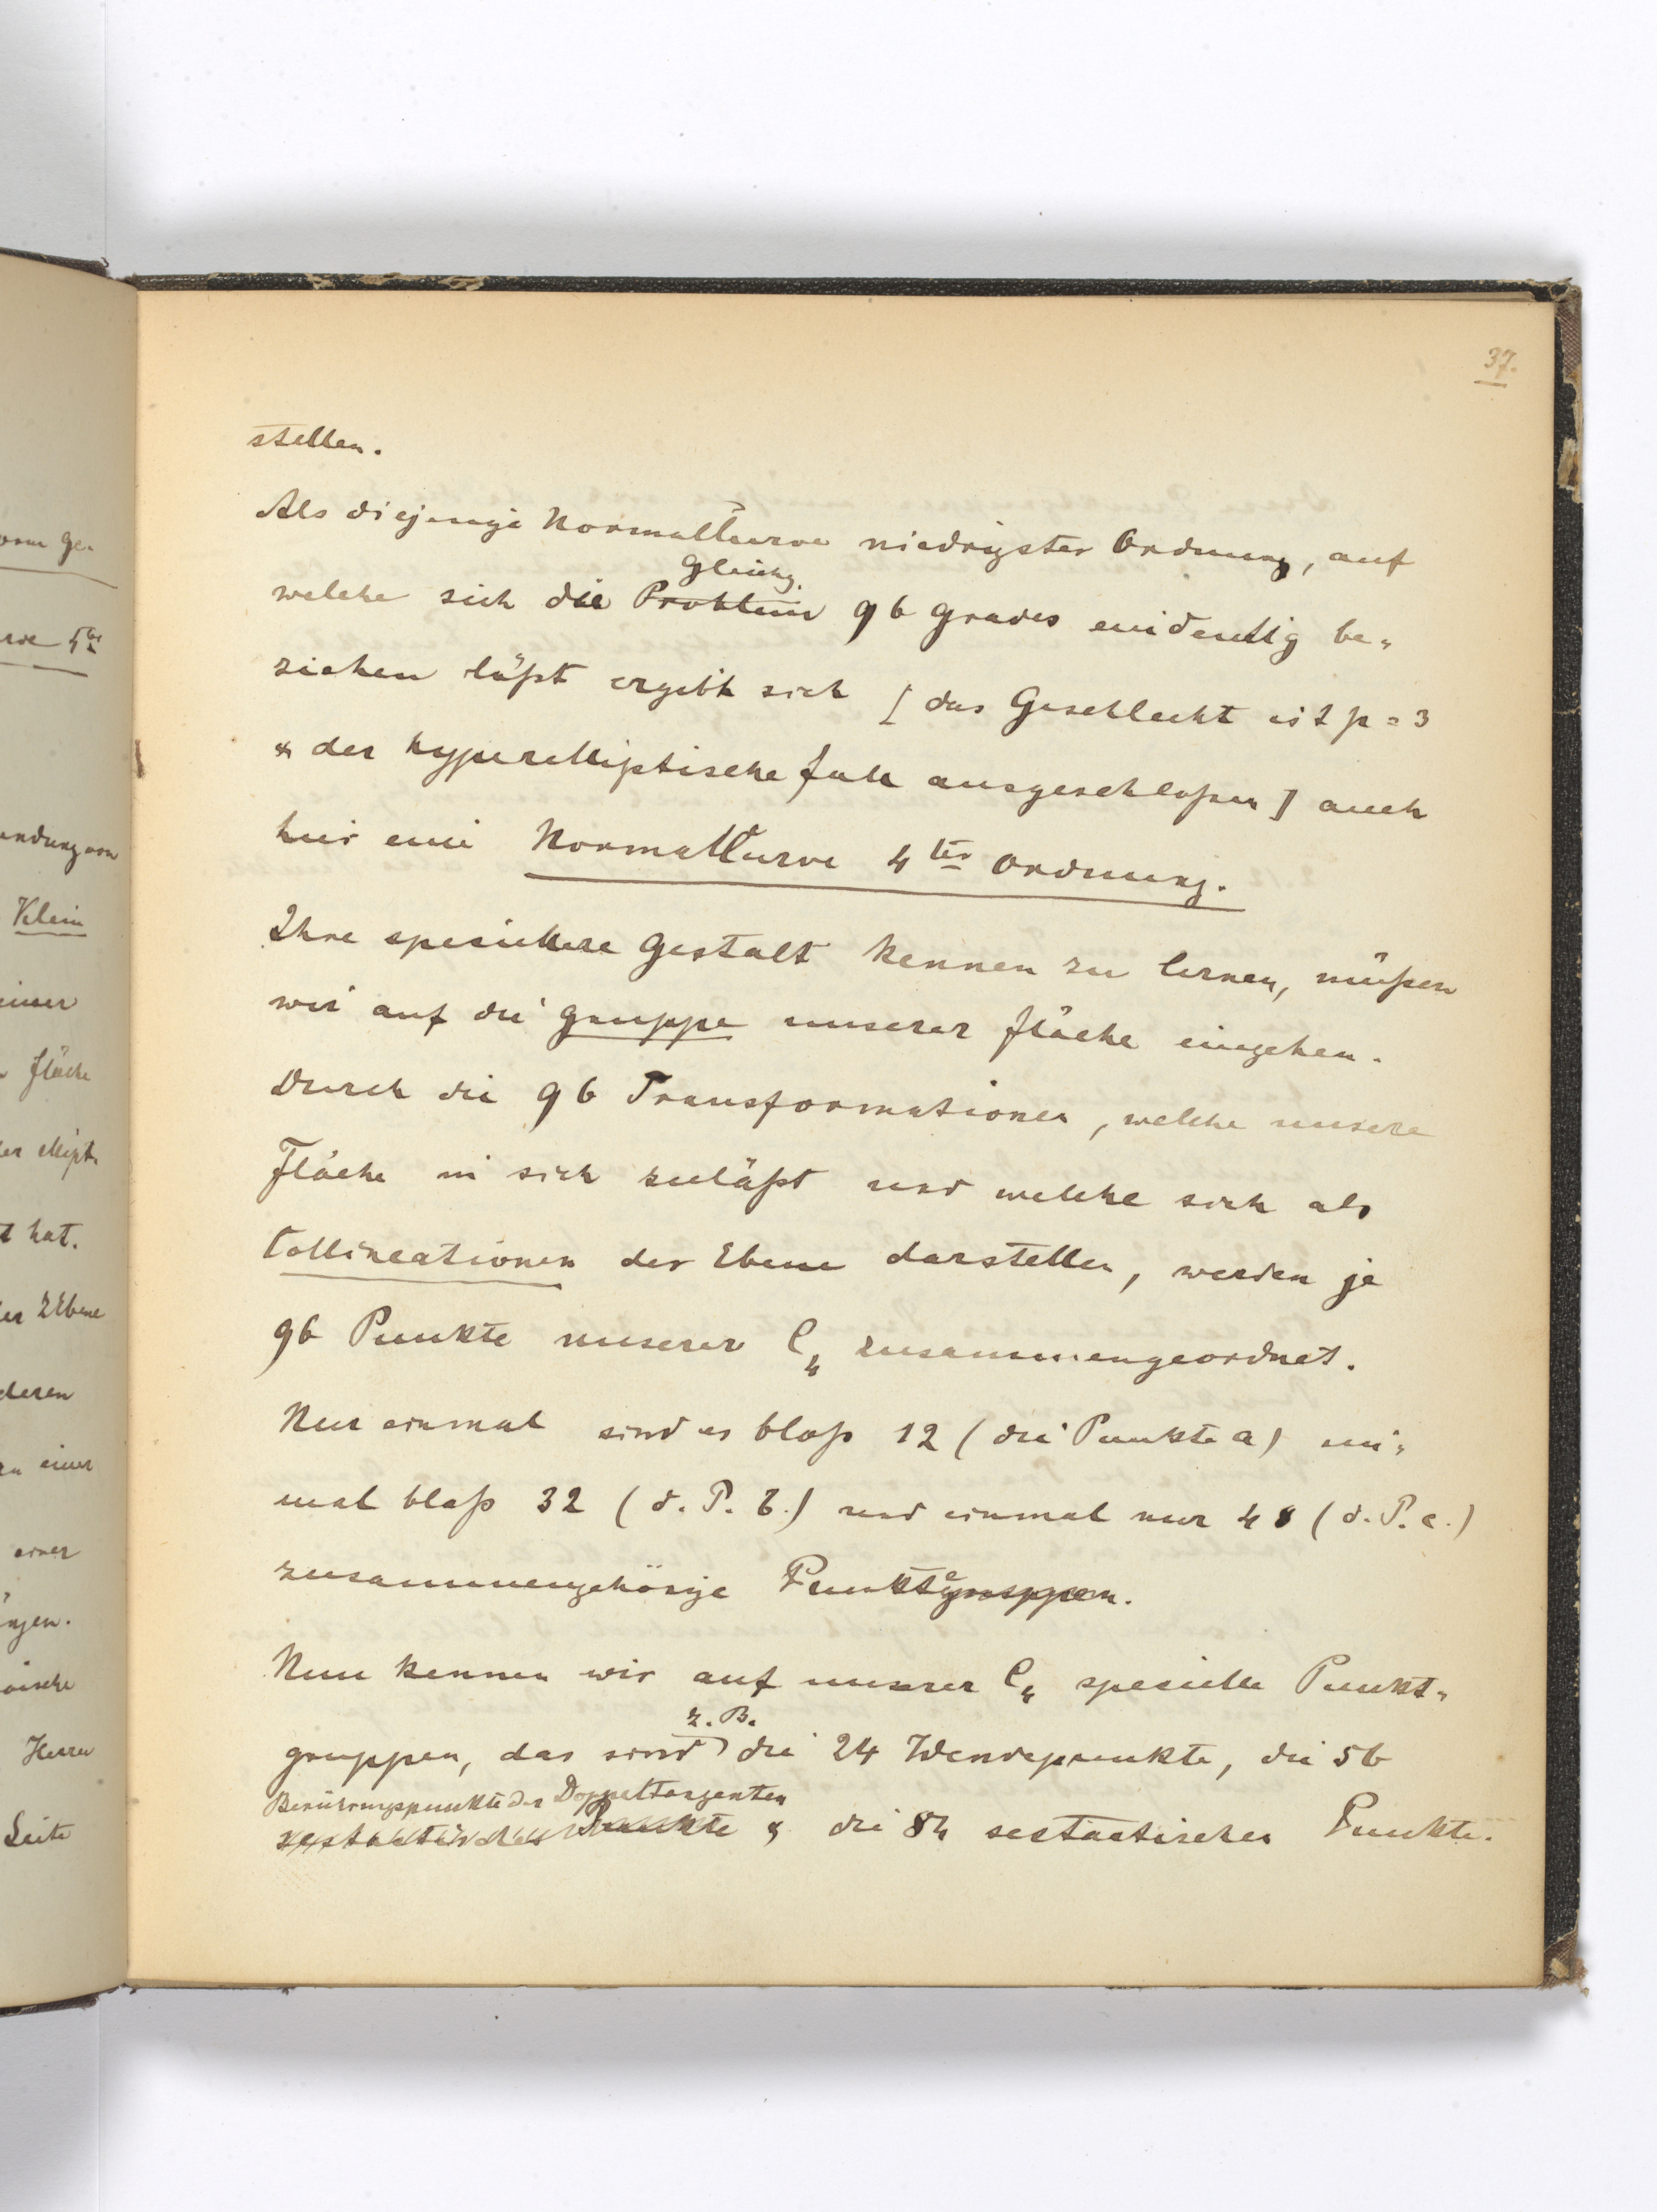 37.
stellen.
Als diejenige Normalkurve niedrigster Ordnung, auf
Gleichg.
welche sich die Problem 96 Grades eindeutig be-
ziehen läßt ergibt sich [das Geschlecht ist p = 3
& der hyperelliptische Fall ausgeschloßen] auch
hier eine Normalkurve 4ter Ordnung.
Ihre speziellere Gestalt kennen zu lernen, müßen
wir auf die Gruppe unserer Fläche eingehen.
Durch die 96 Transformationen, welche unsere
Fläche in sich zuläßt und welche sich als
Collineationen der Ebene darstellen, werden je
96 Punkte unserer C4 zusammengeordnet.
Nur einmal sind es bloß 12 (die Punkte a) ein-
mal bloß 32 (d. P. b.) und einmal nur 48 (d. P. c.)
zusammengehörige Punktgruppen.
Nun kennen wir auf unserer C4 spezielle Punkt-
z. B.
gruppen, das sind die 24 Wendepunkte, die 56
Berührungspunkte der Doppeltangenten
sextaktischen Punkte & die 84 sextactischen Punkte.
orm Ge-
rve 4ter
endung von
Klein
einer
Fläche
er ellipt.
t hat.
er ZEbene
deren
einer
einer
Herrn
Seite